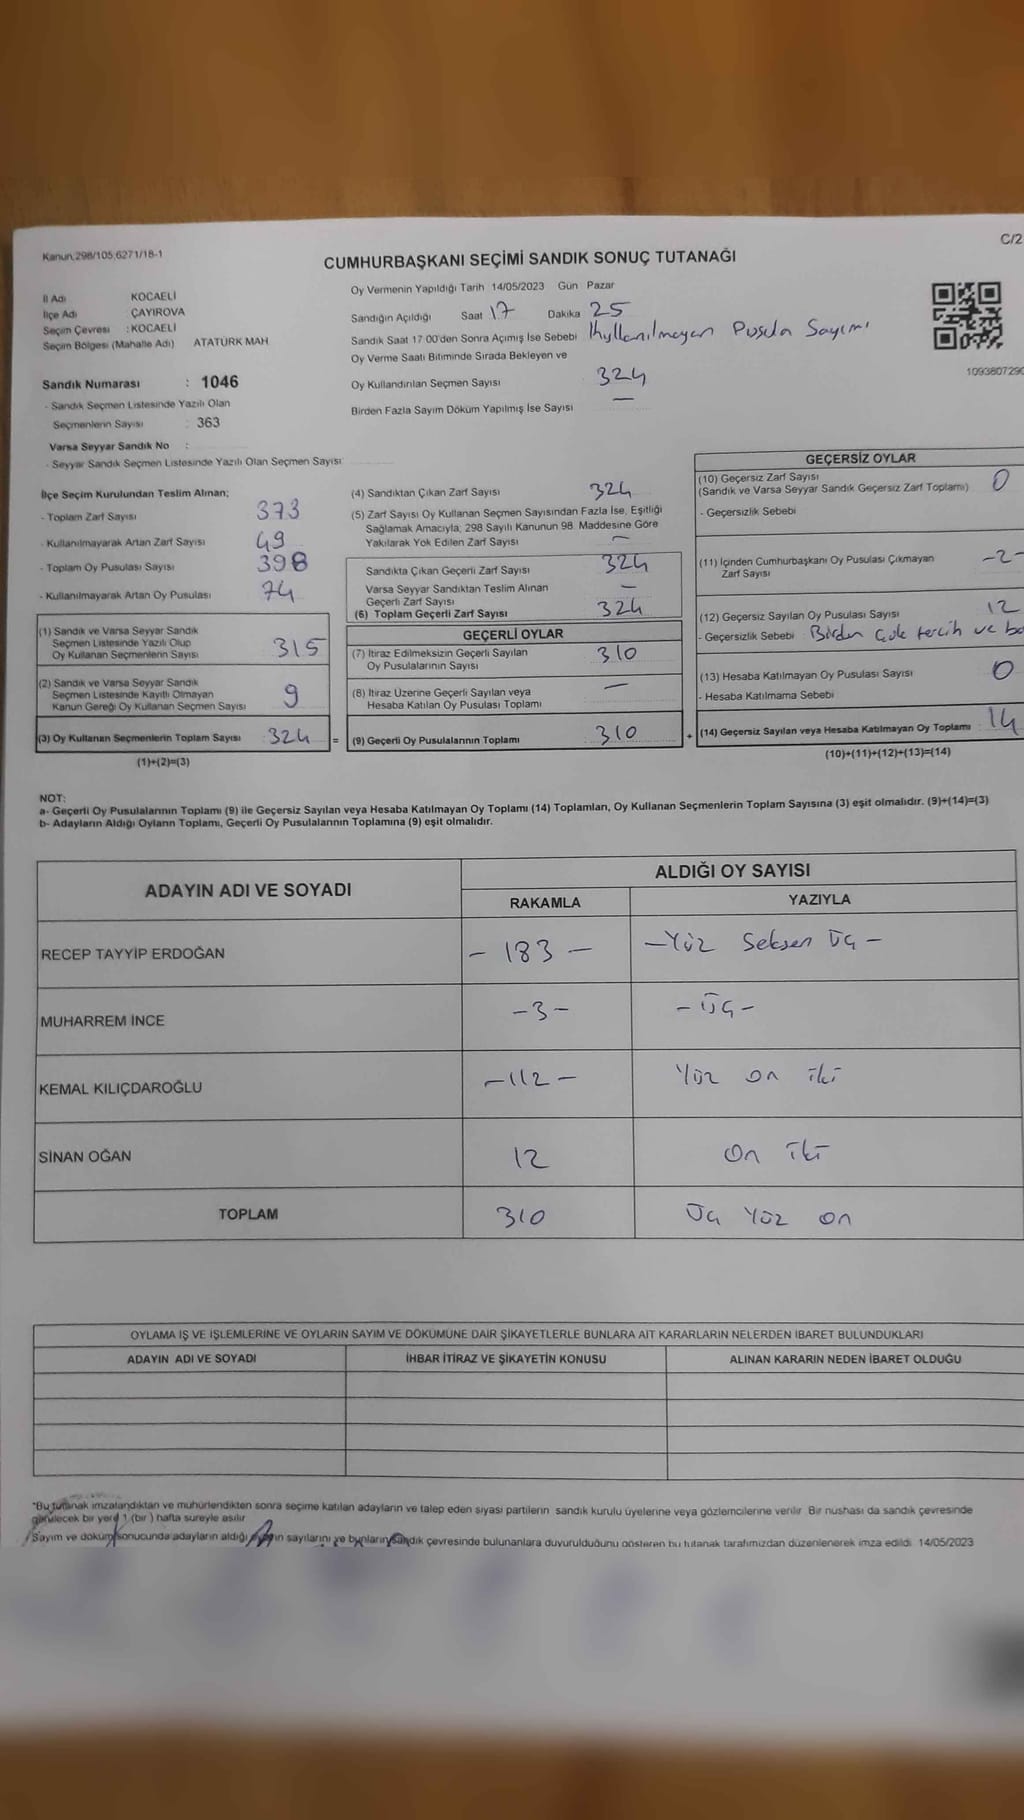 Kanun;298/105,6271/18-1
C/2
CUMHURBAŞKANI SEÇİMİ SANDIK SONUÇ TUTANAĞI
İl Adı KOCAELİ
İlçe Adı ÇAYIROVA
Seçim Çevresi : KOCAELİ
Seçim Bölgesi (Mahalle Adı) ATATÜRK MAH
Oy Vermenin Yapıldığı Tarih 14/05/2023 Gün Pazar
Sandığın Açıldığı Saat 17 Dakika 25
Sandık Saat 17 00'den Sonra Açımış İse Sebebi Kullanılmayan Pusula Sayımı
Oy Verme Saati Bitiminde Sırada Bekleyen ve
Oy Kullandırılan Seçmen Sayısı 324
Birden Fazla Sayım Döküm Yapılmış İse Sayısı —
1093807290
Sandık Numarası : 1046
- Sandık Seçmen Listesinde Yazılı Olan
Seçmenlerin Sayısı : 363
Varsa Seyyar Sandık No :
- Seyyar Sandık Seçmen Listesinde Yazılı Olan Seçmen Sayısı
İlçe Seçim Kurulundan Teslim Alınan;
- Toplam Zarf Sayısı 373
- Kullanılmayarak Artan Zarf Sayısı 49
- Toplam Oy Pusulası Sayısı 398
- Kullanılmayarak Artan Oy Pusulası 74
(1) Sandık ve Varsa Seyyar Sandık
Seçmen Listesinde Yazılı Olup
Oy Kullanan Seçmenlerin Sayısı 315
(2) Sandık ve Varsa Seyyar Sandık
Seçmen Listesinde Kayıtlı Olmayan
Kanun Gereği Oy Kullanan Seçmen Sayısı 9
(3) Oy Kullanan Seçmenlerin Toplam Sayısı 324 =
(1)+(2)=(3)
(4) Sandıktan Çıkan Zarf Sayısı 324
(5) Zarf Sayısı Oy Kullanan Seçmen Sayısından Fazla İse, Eşitliği
Sağlamak Amacıyla; 298 Sayılı Kanunun 98. Maddesine Göre
Yakılarak Yok Edilen Zarf Sayısı —
Sandıkta Çıkan Geçerli Zarf Sayısı 324
Varsa Seyyar Sandıktan Teslim Alınan
Geçerli Zarf Sayısı —
(6) Toplam Geçerli Zarf Sayısı 324
GEÇERLİ OYLAR
(7) İtiraz Edilmeksizin Geçerli Sayılan
Oy Pusulalarının Sayısı 310
(8) İtiraz Üzerine Geçerli Sayılan veya
Hesaba Katılan Oy Pusulası Toplamı —
(9) Geçerli Oy Pusulalarının Toplamı 310 +
GEÇERSİZ OYLAR
(10) Geçersiz Zarf Sayısı
(Sandık ve Varsa Seyyar Sandık Geçersiz Zarf Toplamı) 0
- Geçersizlik Sebebi
(11) İçinden Cumhurbaşkanı Oy Pusulası Çıkmayan
Zarf Sayısı -2-
(12) Geçersiz Sayılan Oy Pusulası Sayısı 12
- Geçersizlik Sebebi Birden çok tercih ve bo
(13) Hesaba Katılmayan Oy Pusulası Sayısı 0
- Hesaba Katılmama Sebebi
(14) Geçersiz Sayılan veya Hesaba Katılmayan Oy Toplamı 14
(10)+(11)+(12)+(13)=(14)
NOT:
a- Geçerli Oy Pusulalarının Toplamı (9) ile Geçersiz Sayılan veya Hesaba Katılmayan Oy Toplamı (14) Toplamları, Oy Kullanan Seçmenlerin Toplam Sayısına (3) eşit olmalıdır. (9)+(14)=(3)
b- Adayların Aldığı Oyların Toplamı, Geçerli Oy Pusulalarının Toplamına (9) eşit olmalıdır.
ADAYIN ADI VE SOYADI
ALDIĞI OY SAYISI
RAKAMLA YAZIYLA
RECEP TAYYİP ERDOĞAN - 183 - - Yüz Seksen Üç -
MUHARREM İNCE -3- - Üç -
KEMAL KILIÇDAROĞLU -112- Yüz on iki
SİNAN OĞAN 12 On iki
TOPLAM 310 Üç Yüz on
OYLAMA İŞ VE İŞLEMLERİNE VE OYLARIN SAYIM VE DÖKÜMÜNE DAİR ŞİKAYETLERLE BUNLARA AİT KARARLARIN NELERDEN İBARET BULUNDUKLARI
ADAYIN ADI VE SOYADI İHBAR İTİRAZ VE ŞİKAYETİN KONUSU ALINAN KARARIN NEDEN İBARET OLDUĞU
*Bu tutanak imzalandıktan ve mühürlendikten sonra seçime katılan adayların ve talep eden siyasi partilerin sandık kurulu üyelerine veya gözlemcilerine verilir Bir nushası da sandık çevresinde
görülecek bir yere 1 (bir ) hafta süreyle asılır
Sayım ve döküm sonucunda adayların aldığı sayılarını ve bunların sandık çevresinde bulunanlara duyurulduğunu gösteren bu tutanak tarafımızdan düzenlenerek imza edildi 14/05/2023